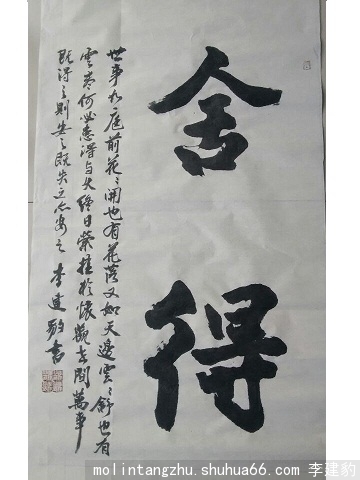 舍得
世事如庭前花々開也有花落又如天邊雲々舒也有
雲卷何必患得与失終日縈挂於懷觀世間萬事
既得之則安之既失之亦安之 李建豹書
molintangzhu.shuhua66.com 李建豹